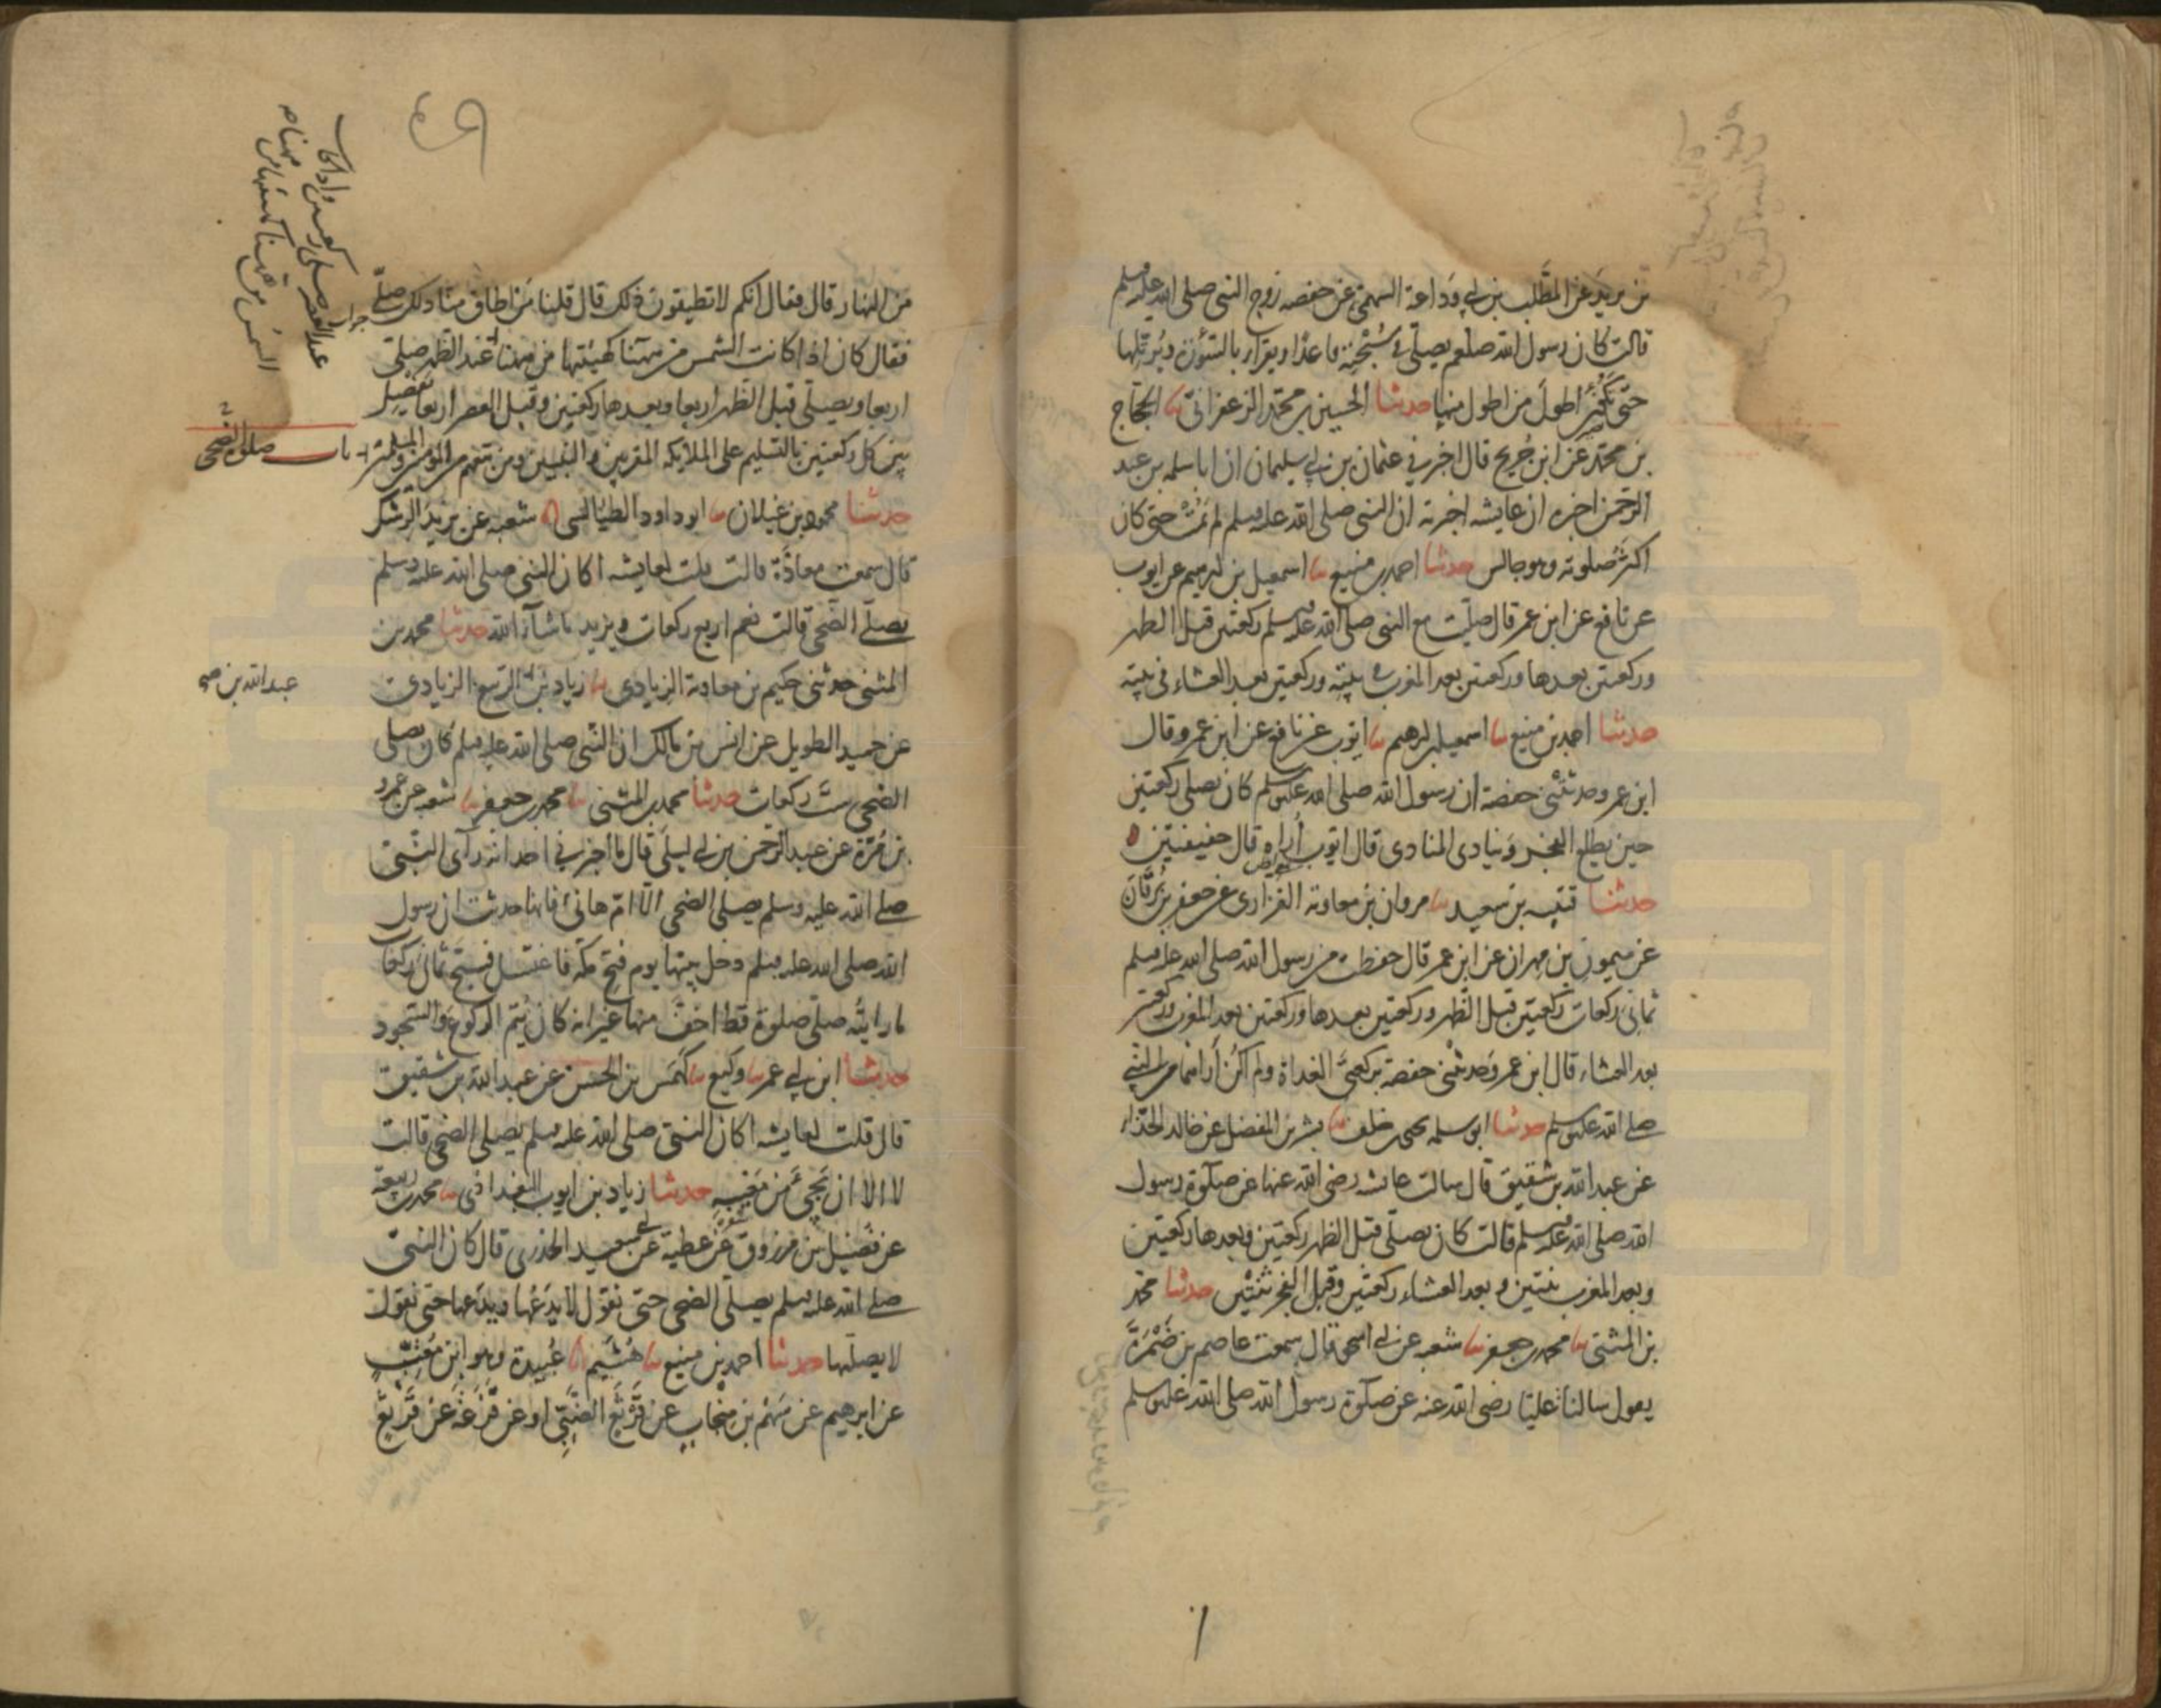 بن يزيد عن المطلب بن ابي وداعة السهمي عن حفصه زوج النبي صلى الله عليه وسلم
قالت كان رسول الله صلعم يصلي في سُبْحَتِه قاعدًا ويقرا بالسّورة ويُرتّلها
حتى تكون اطول من اطول منها حدثنا الحسين بن محمّد الزعفراني ثنا الحجّاج
بن محمّد عن ابن جُريج قال اخبرني عثمان بن ابي سليمان ان ابا سلمه بن عبد
الرحمن اخبره ان عايشه اخبرته ان النبي صلى الله عليه وسلم لم يَمُتْ حتى كان
اكثر صلوته وهو جالس حدثنا احمد بن منيع ثنا اسمعيل بن ابرهيم عن ايوب
عن نافع عن ابن عمر قال صليّت مع النبي صلى الله عليه وسلم ركعتين قبل الظهر
وركعتين بعدها وركعتين بعد المغرب في بيته وركعتين بعد العشاء في بيته
حدثنا احمد بن منيع ثنا اسمعيل بن ابرهيم ثنا ايّوب عن نافع عن ابن عمر وقال
ابن عمر وحدثتني حفصة ان رسول الله صلى الله عليه وسلم كان يصلى ركعتين
حين يطلع الفجر وينادى المنادى قال ايّوب أُراه قال خفيفتين ه
حدثنا قتيبه بن سعيد ثنا مروان بن معاوية الفزارى عن جعفر بن بُرْقَانَ
عن ميمون بن مهران عن ابن عمر قال حفظت من رسول الله صلى الله عليه وسلم
ثماني ركعات ركعتين قبل الظهر وركعتين بعدها وركعتين بعد المغرب وركعتين
بعد العشاء قال ابن عمر وحدثتني حفصة بركعتي الغداة ولم اكن أراهما من النبي
صلى الله عليه وسلم حدثنا ابو سلمه يحيى بن خلف ثنا بشر بن المفضل عن خالد الحذاء
عن عبد الله بن شقيق قال سالت عائشه رضى الله عنها عن صلوة رسول
الله صلى الله عليه وسلم قالت كان يصلّى قبل الظهر ركعتين وبعدها ركعتين
وبعد المغرب ثنتين وبعد العشاء ركعتين وقبل الفجر ثنتين حدثنا محمّد
بن المثنى ثنا محمد بن جعفر ثنا شعبه عن ابي اسحق قال سمعت عاصم بن ضَمْرَةَ
يعول سالنا عليّا رضى الله عنه عن صلوة رسول الله صلى الله عليه وسلم
من النهار قال فقال انكم لا تطيقون ذلك قال قلنا من اطاق منّا ذلك صلّى
فقال كان اذا كانت الشمس من ههنا كهيئتها من ههنا عند الظهر صلى
اربعا ويصلّى قبل الظهر اربعا وبعدها ركعتين وقبل العصر اربعا يفصل
بين كل ركعتين بالتسليم على الملايكه المقربين والنبيين ومن تبعهم من المومنين والمسلمين
باب صلوة الضحى
حدثنا محمود بن غيلان ثنا ابو داود الطيالسي انا شعبه عن يزيد الرِّشْك
قال سمعت معاذَة قالت قلت لعايشه اكان النبي صلى الله عليه وسلم
يصلّى الضّحى قالت نعم اربع ركعات ويزيد ما شآء الله حدثنا محمد بن
المثنى حدثني حكيم بن معاوية الزيادى ثنا زياد بن الربيع الزيادى
عبد الله بن صح
عن حميد الطويل عن انس بن مالك ان النّبي صلى الله عليه وسلم كان يصلى
الضحى ستّ ركعات حدثنا محمد بن المثنى ثنا محمد بن جعفر ثنا شعبه عن عمرو
بن مُرّة عن عبد الرّحمن بن ابي ليلى قال ما أخبرني احد انه رآى النّبي
صلى الله عليه وسلم يصلى الضحى الّا امّ هانئ فانها حدثت ان رسول
الله صلى الله عليه وسلم دخل بيتها يوم فتح مكه فاغتسل فسبّح ثماني ركعات
ما رايتُه صلّى صلوة قط اخفّ منها غير انه كان يُتِم الركوع والسّجود
حدثنا ابن ابي عمر ثنا وكيع ثنا كَهْمَس بن الحسن عن عبد الله بن شقيق
قال قلت لعايشه اكان النبيّ صلى الله عليه وسلم يصلى الضحى قالت
لا الا ان يَجيءَ من مَغيبِهِ حدثنا زياد بن ايوب البغدادى ثنا محمد بن ربيعة
عن فُضيل بن مرزوق عن عطية عن ابي سعيد الخدرى قال كان النبي
صلى الله عليه وسلم يصلّى الضحى حتى نقول لا يَدَعُها ويدَعها حتى نقول
لا يصليها حدثنا احمد بن منيع ثنا هُشَيم انا عُبيدة وهو ابن مُعَتِّبٍ
عن ابرهيم عن سَهْم بن مِنْجابٍ عن قَرْثَعٍ الضّبّيّ او عن قَزَعَة عن قَرْثَعٍ